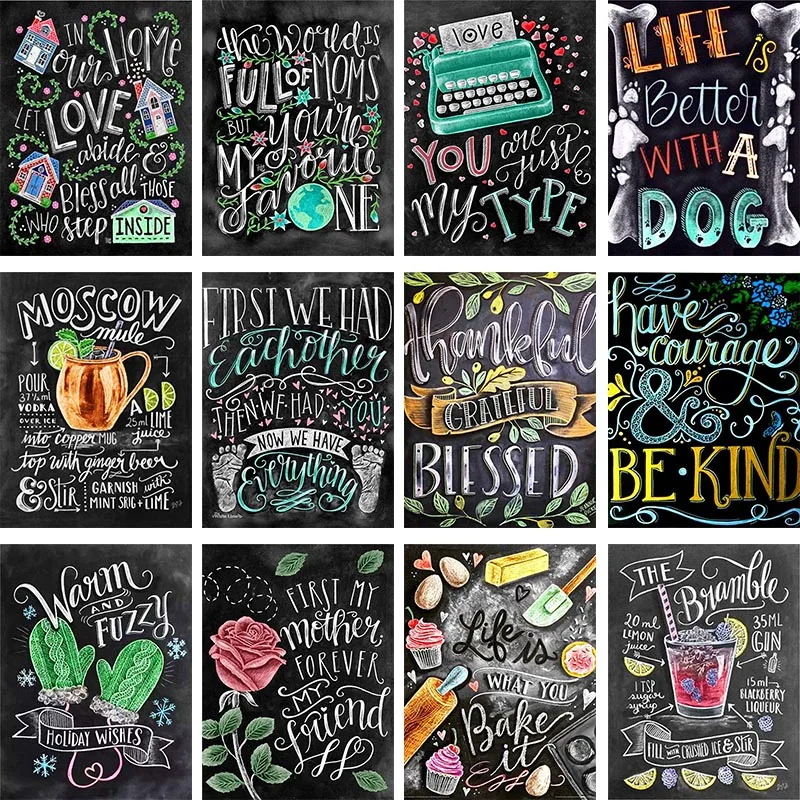 IN
our HOME
LET
LOVE
abide &
BLESS all THOSE
WHO step INSIDE
the World IS
FULL OF MOMS
BUT you're
MY favorite
ONE
love
YOU are
just
my TYPE
LIFE is
Better
WITH A
DOG
MOSCOW
mule
POUR
37 ½ ml
VODKA
OVER ICE
into copper MUG
ADD
25 ml LIME
juice
top with ginger beer
& Stir
GARNISH with
MINT SRIG + LIME
FIRST WE HAD
Eachother
THEN WE HAD YOU
NOW WE HAVE
Everything
thankful
GRATEFUL
BLESSED
have
courage
&
BE · KIND
Warm
AND
FUZZY
HOLIDAY WISHES
FIRST MY
mother,
FOREVER
MY
friend
Life is
WHAT YOU
Bake
it
THE
Bramble
20 ml
LEMON
juice
35ML
GIN
1 TSP
sugar
syrup
15 ml
BLACKBERRY
LIQUEUR
FILL WITH CRUSHED ICE & STIR